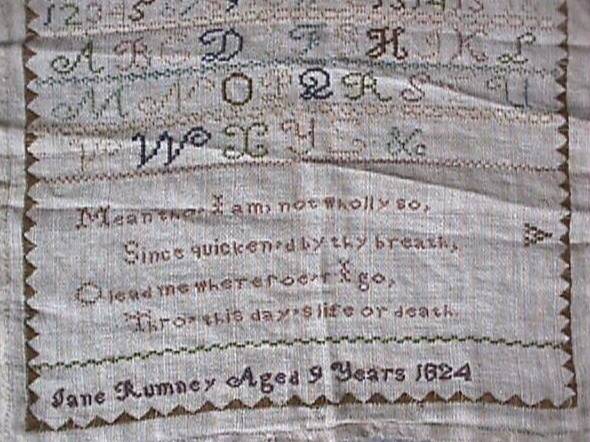 1 2 3 4 5 6 7
A B D F H I K L
M N O P Q R S U
W X Y Z &
Mean tho' I am, not wholly so,
Since quicken'd by thy breath,
O lead me wheresoe'er I go,
Thro' this day's life or death.
Jane Rumney Aged 9 Years 1824